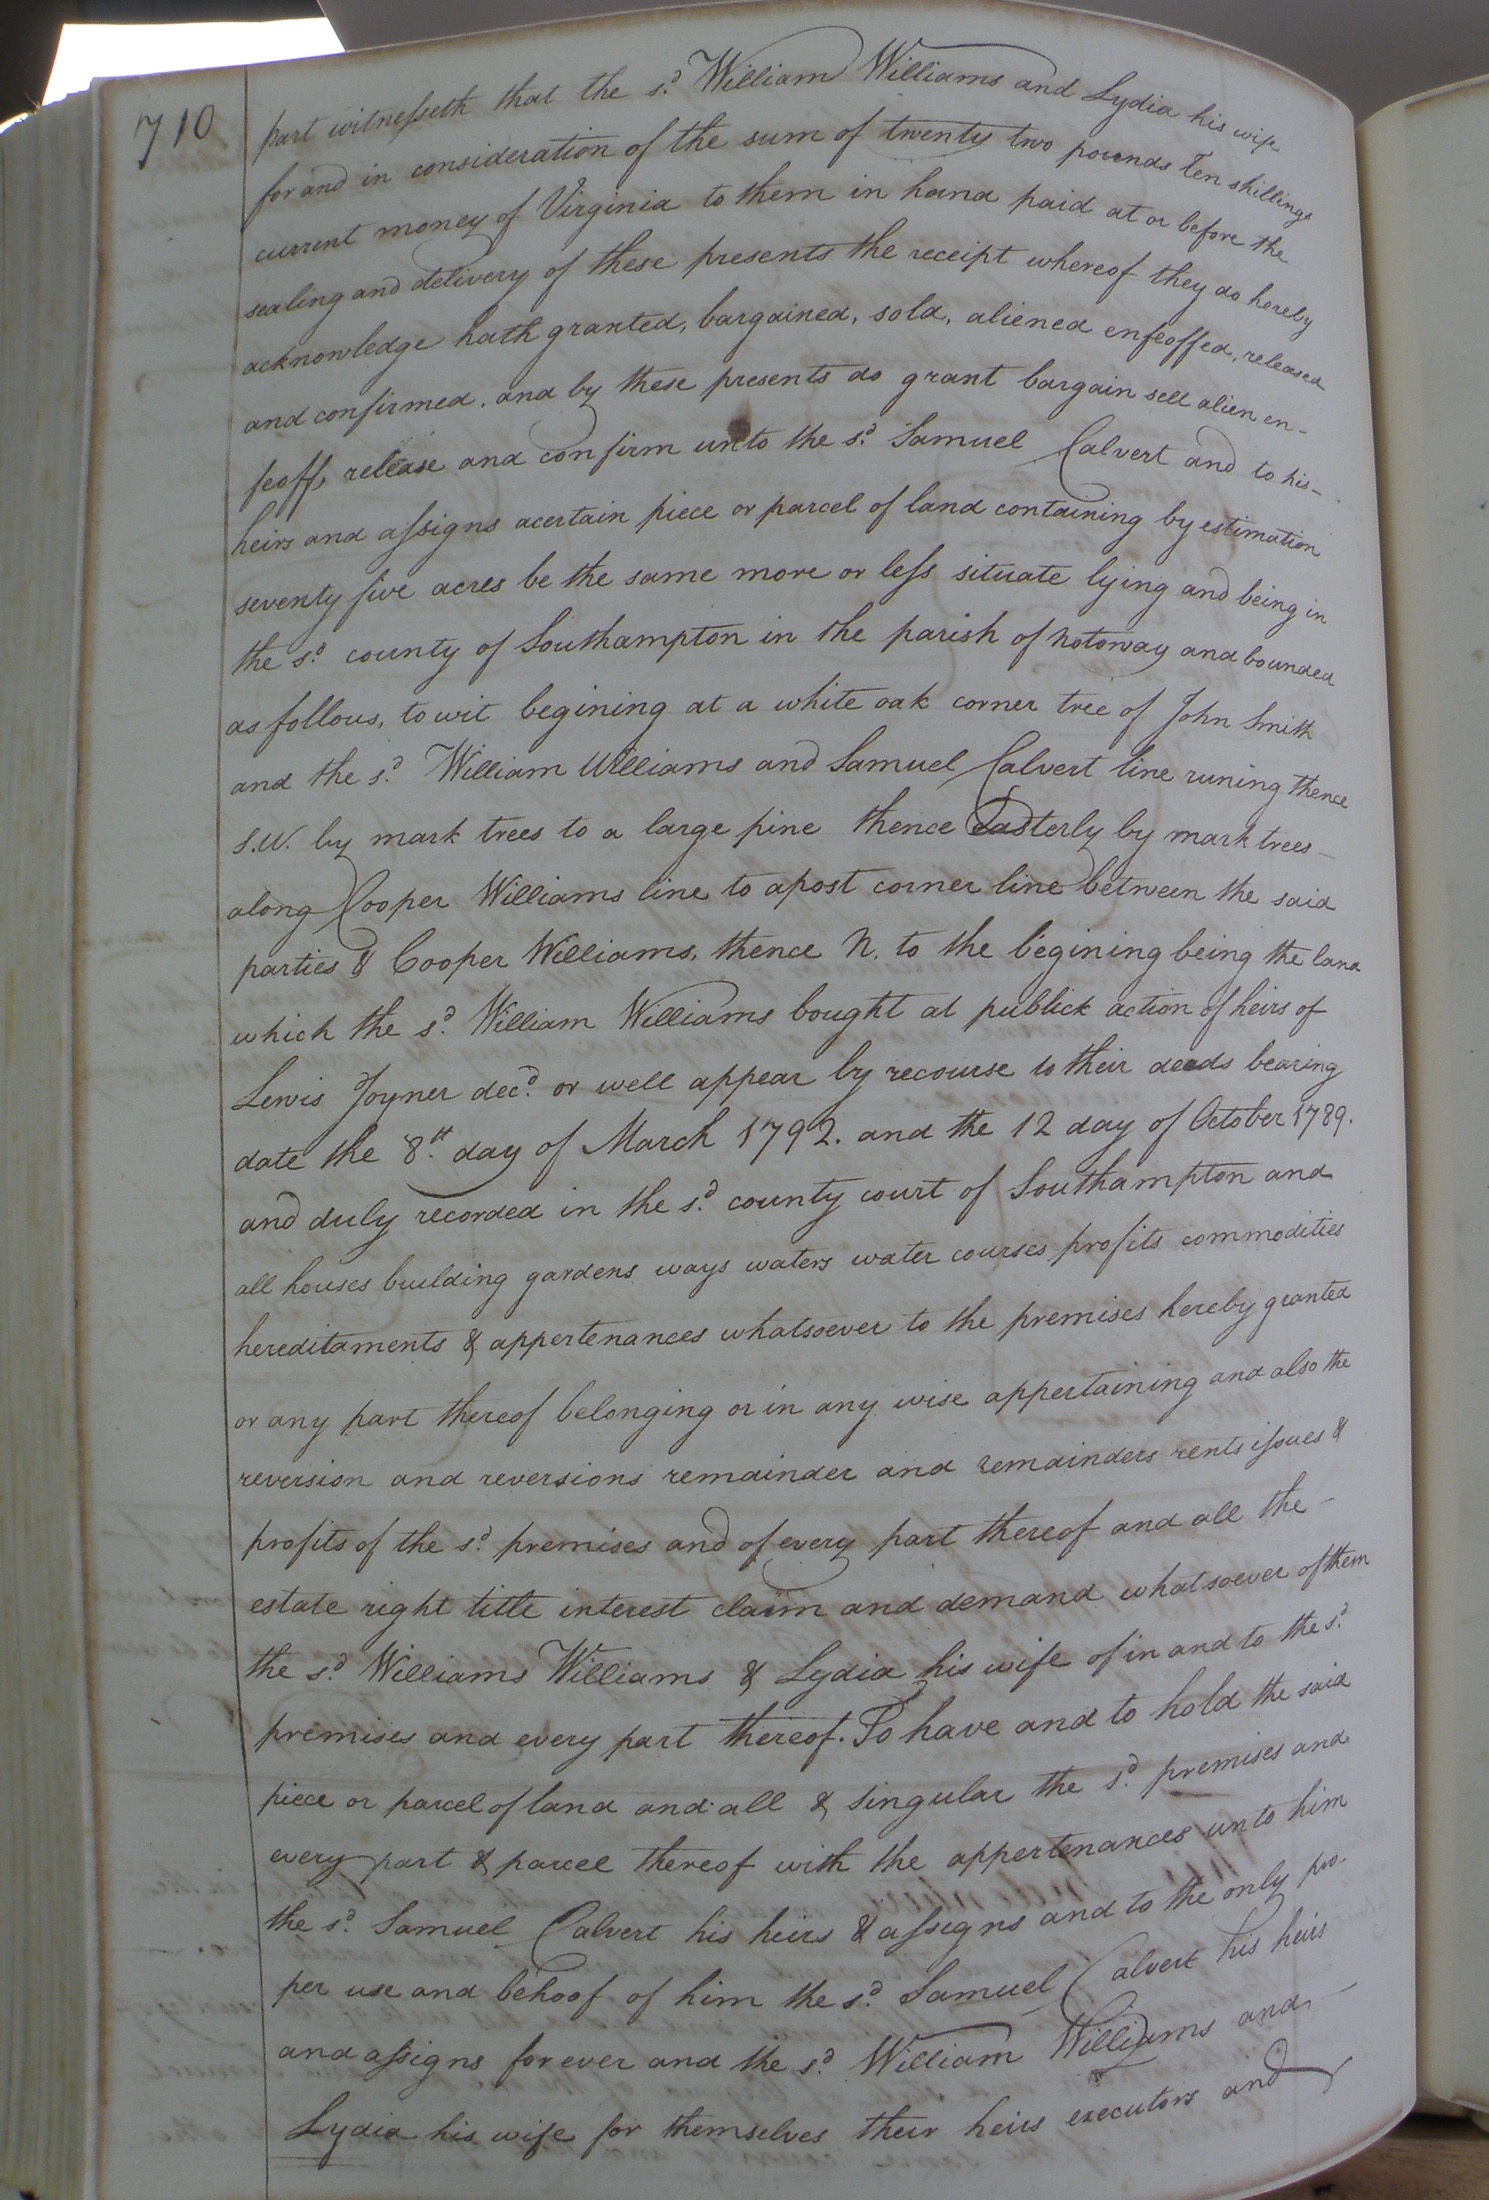 710
part witnesseth that the sd. William Williams and Lydia his wife
for and in consideration of the sum of twenty two pounds Ten shillings
current money of Virginia to them in hand paid at or before the
sealing and delivery of these presents the receipt whereof they do hereby
acknowledge hath granted, bargained, sold, aliened enfeoffed, released
and confirmed. and by these presents do grant bargain sell alien en-
feoff, release and confirm unto the sd. Samuel Calvert and to his-
heirs and assigns acertain piece or parcel of land containing by estimation
seventy five acres be the same more or less situate lying and being in
the sd. county of Southampton in the parish of Notoway and bounded
as follows, to wit begining at a white oak corner tree of John Smith
and the sd. William Williams and Samuel Calvert line runing thence
S.W. by mark trees to a large pine thence Easterly by mark trees-
along Cooper Williams line to apost corner line between the said
parties & Cooper Williams, thence N. to the begining being the land
which the sd. William Williams bought at publick action of heirs of
Lewis Joyner decd. or well appear by recourse to their deeds bearing
date the 8th. day of March 1792. and the 12 day of October 1789.
and duly recorded in the sd. county court of Southampton and
all houses building gardens ways waters water courses profits commodities
hereditaments & appertenances whatsoever to the premises hereby granted
or any part thereof belonging or in any wise appertaining and also the
reversion and reversions remainder and remainders rents issues &
profits of the sd. premises and of every part thereof and all the-
estate right title interest claim and demand whatsoever of them
the sd. Williams Williams & Lydia his wife of in and to the sd.
premises and every part thereof. To have and to hold the said
piece or parcel of land and all & singular the sd. premises and
every part & parcel thereof with the appertenances unto him
the sd. Samuel Calvert his heirs & assigns and to the only pro-
per use and behoof of him the sd. Samuel Calvert his heirs
and assigns for ever and the sd. William Williams and
Lydia his wife for themselves their heirs executors and